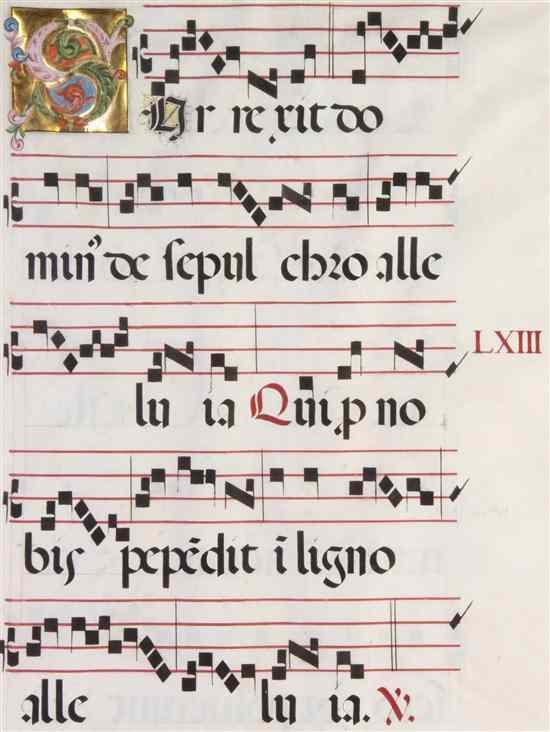 Surrexit do
min⁹ de sepul chro alle
lu ia Qui p no
LXIII
bis pepēdit ī ligno
alle lu ia. V.